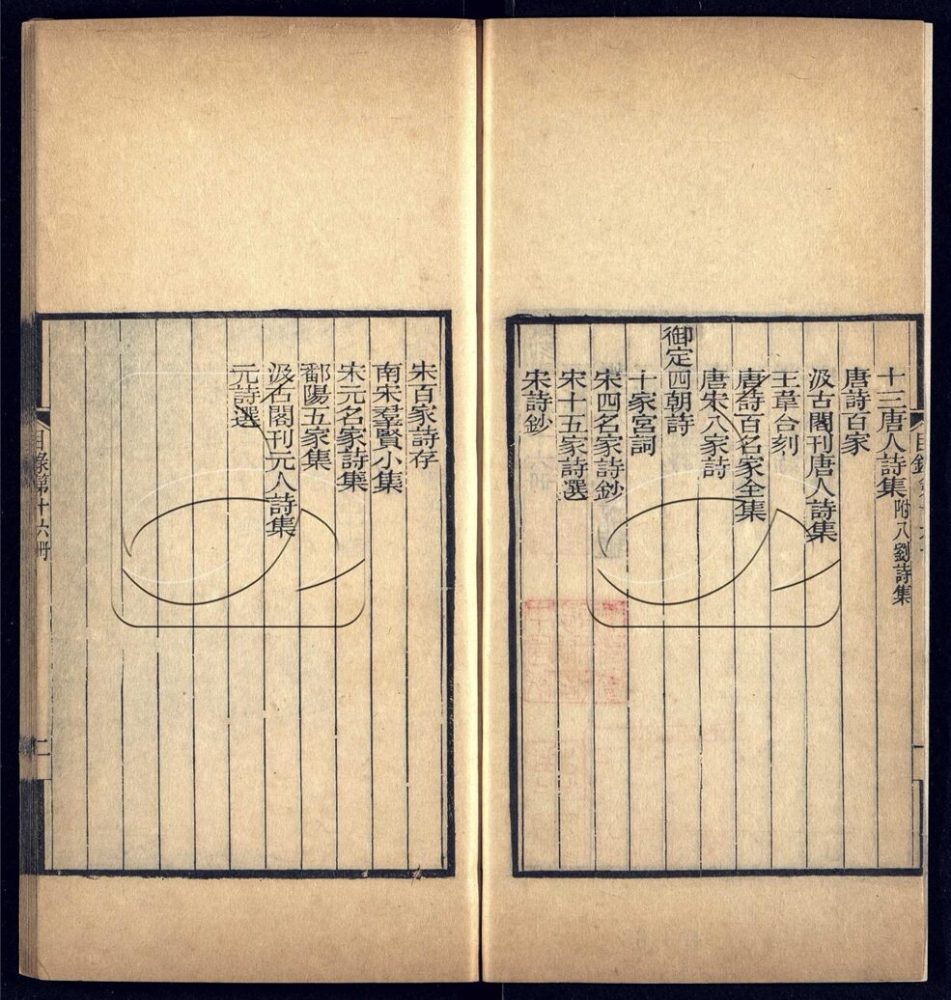 十三唐人詩集附八劉詩集
唐詩百家
汲古閣刊唐人詩集
王韋合刻
唐詩百名家全集
唐宋八家詩
御定四朝詩
十家宮詞
宋四名家詩鈔
宋十五家詩選
宋詩鈔
一
宋百家詩存
南宋羣賢小集
宋元名家詩集
鄱陽五家集
汲古閣刊元人詩集
元詩選
目錄第十六冊
二